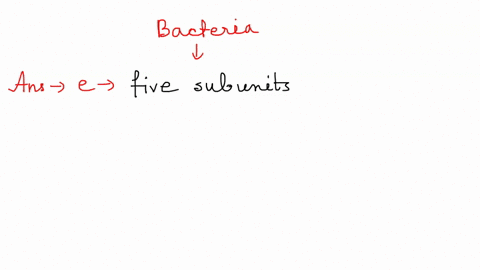 Bacteria
↓
Ans → e → five subunits